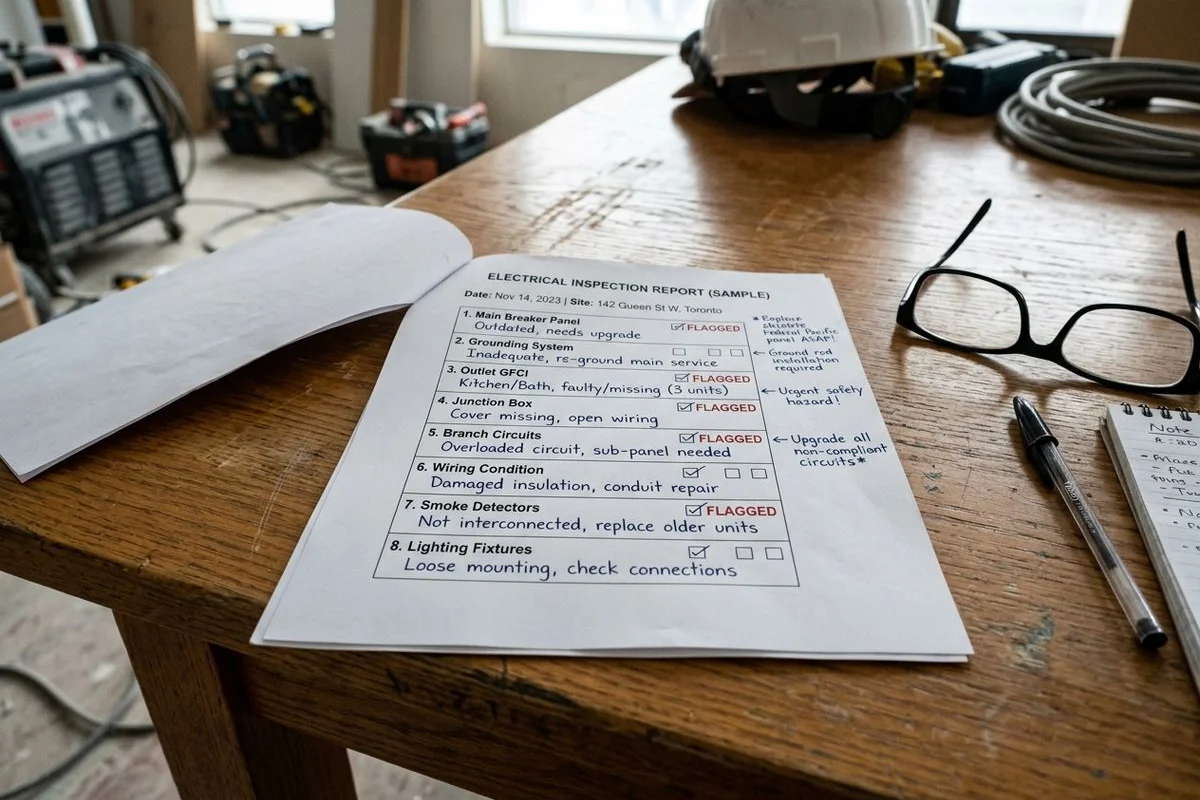 ELECTRICAL INSPECTION REPORT (SAMPLE)
Date: Nov 14, 2023 | Site: 142 Queen St W. Toronto
1. Main Breaker Panel
FLAGGED
Outdated, needs upgrade
2. Grounding System
Inadequate, re-ground main service
3. Outlet GFCI
FLAGGED
Kitchen/Bath, faulty/missing (3 units)
4. Junction Box
FLAGGED
Cover missing, open wiring
5. Branch Circuits
FLAGGED
Overloaded circuit, sub-panel needed
6. Wiring Condition
Damaged insulation, conduit repair
7. Smoke Detectors
FLAGGED
Not interconnected, replace older units
8. Lighting Fixtures
Loose mounting, check connections
Federal Pacific
panel ASAP!
← Ground rod
installation
required
← Urgent safety
hazard!
← Upgrade all
non-compliant
circuits*
Note